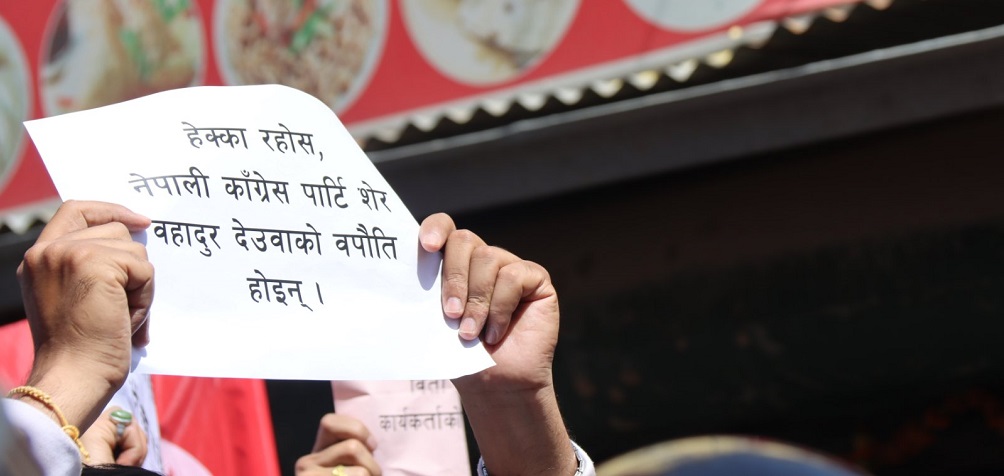 हेक्का रहोस,
नेपाली काँग्रेस पार्टि शेर
वहादुर देउवाको वपौति
होइन् ।
कार्यकर्ताको